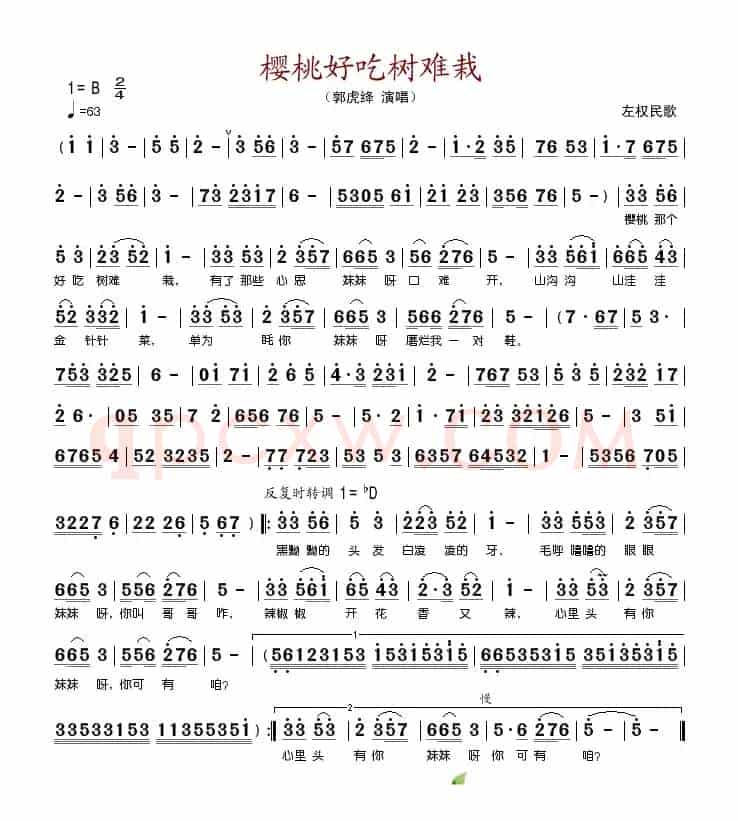 樱桃好吃树难栽
1= B 2/4
（郭虎绛 演唱）
♩=63
左权民歌
( i i | 3 - | 5 5 | 2 - | 3 56 | 3 - | 57 675 | 2 - | 1·2 35 | 76 53 | 1·7 675 |
2 - | 3 56 | 3 - | 73 2317 | 6 - | 5305 61 | 21 23 | 356 76 | 5 - ) | 33 56 |
樱桃 那个
5 3 | 23 52 | 1 - | 33 53 | 2 357 | 665 3 | 56 276 | 5 - | 33 561 | 665 43 |
好 吃 树难 栽, 有了 那些 心 思 妹妹 呀 口 难 开, 山沟 沟 山洼 洼
52 332 | 1 - | 33 53 | 2 357 | 665 3 | 566 276 | 5 - | (7· 67 | 5 3· |
金 针针 菜, 单为 眊 你 妹妹 呀 磨烂我 一 对 鞋。
753 325 | 6 - | 01 71 | 2 6 5 | 4·3 231 | 2 - | 6 53 | 5 3 5 | 232 17 |
2 6· | 05 35 | 7 2 | 656 76 | 5·2 | 1·71 | 23 32126 | 5 - | 3 51 |
qpcxw.com
67654 | 523235 | 2 - | 77 723 | 53 53 | 65357 64532 | 1 - | 5356 705 |
反复时转调 1= ♭D
32276 | 22 26 | 5 67 ) |: 33 56 | 5 3 | 223 52 | 1 - | 33 553 | 2 357 |
黑黝 黝的 头 发 白凌 凌的 牙, 毛呼 噜噜的 眼 眼
665 3 | 556 276 | 5 - | 33 561 | 665 43 | 2·3 52 | 1 - | 33 53 | 2 357 |
妹妹 呀, 你叫 哥 哥 咋, 辣椒 椒 开 花 香 又 辣, 心里 头 有 你
1
665 3 | 556 276 | 5 - | (56123153 15315351 | 66535315 35715351 |
妹妹 呀, 你可 有 咱?
2
慢
33533153 11355351 ) :| 33 53 | 2 357 | 665 3 | 5·6 276 | 5 - | 5 - ‖
心里 头 有 你 妹妹 呀 你 可 有 咱?